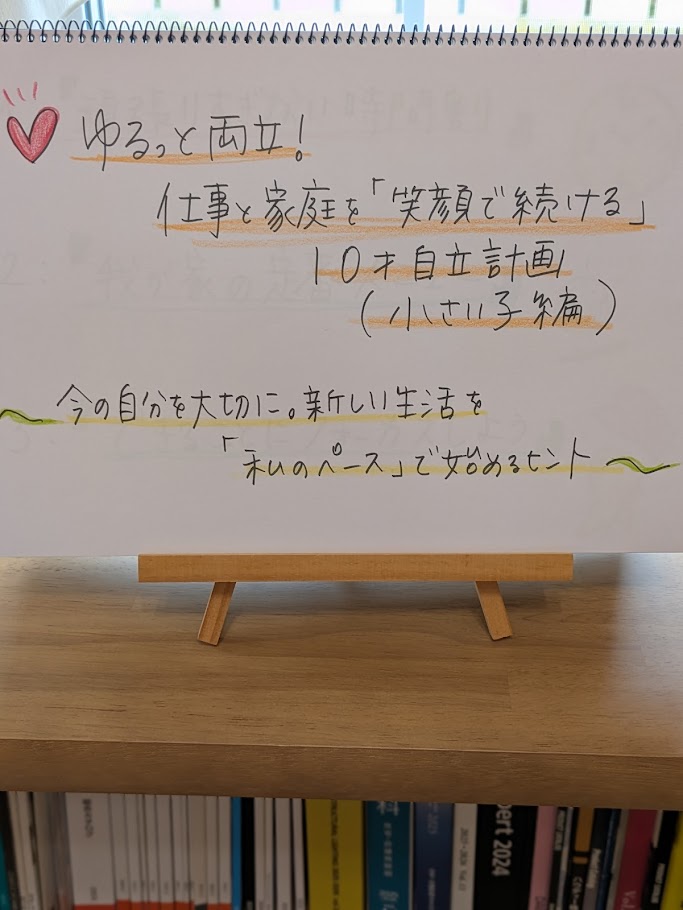 ゆるっと両立!
仕事と家庭を「笑顔で続ける」
10才自立計画
(小さい子編)
今の自分を大切に。新しい生活を
「私のペース」で始めるヒント
pert 2024